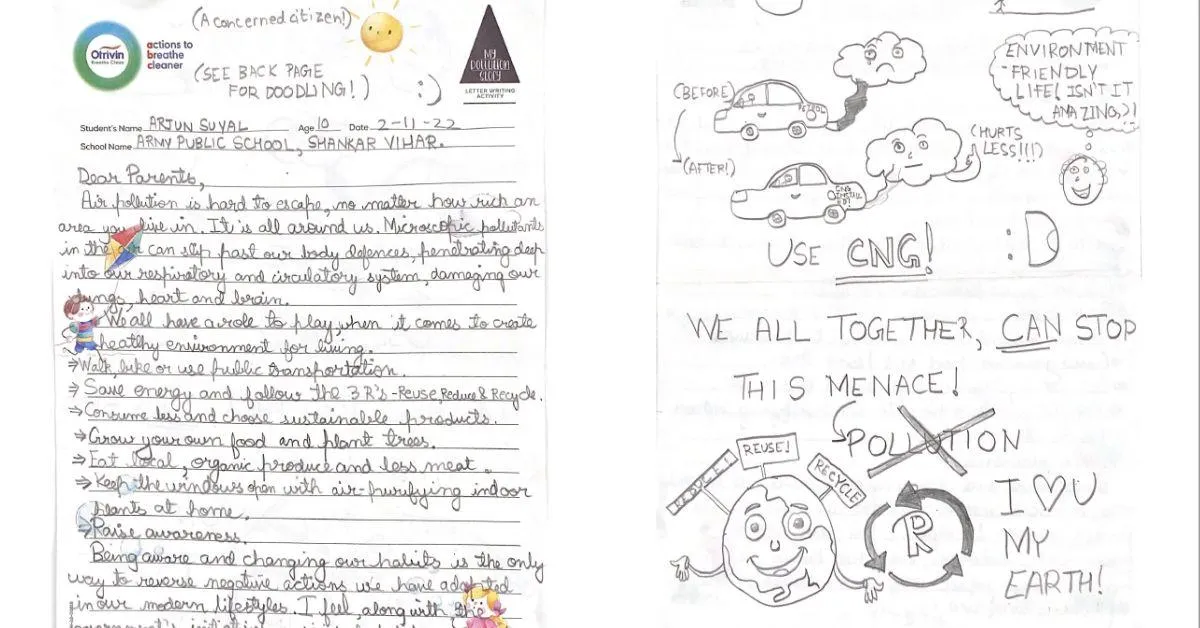 (A concerned citizen!)
Otrivin
Breathe Clean
actions to
breathe
cleaner
(SEE BACK PAGE
FOR DOODLING!)
:)
MY
POLLUTION
STORY
LETTER WRITING
ACTIVITY
Student's Name ARJUN SUYAL Age 10 Date 2-11-22
School Name ARMY PUBLIC SCHOOL, SHANKAR VIHAR.
Dear Parents,
Air pollution is hard to escape, no matter how rich an
area you live in. It is all around us. Microscopic pollutants
in the air can slip past our body defences, penetrating deep
into our respiratory and circulatory system, damaging our
lungs, heart and brain.
We all have a role to play when it comes to create
healthy environment for living.
⇒Walk, bike or use public transportation.
⇒ Save energy and follow the 3 R's - Reuse, Reduce & Recycle.
⇒ Consume less and choose sustainable products.
⇒ Grow your own food and plant trees.
⇒ Eat local, organic produce and less meat.
⇒ Keep the windows open with air-purifying indoor
plants at home.
⇒ Raise awareness.
Being aware and changing our habits is the only
way to reverse negative actions we have adapted
in our modern lifestyles. I feel, along with the
government's
(BEFORE)
PETROL
ENVIRONMENT
FRIENDLY
LIFE! ISN'T IT
AMAZING,)!
(AFTER!)
CNG
INSTALL
ED!
(HURTS
LESS!!!)
USE CNG! :D
WE ALL TOGETHER, CAN STOP
THIS MENACE!
POLLUTION
REDUCE!
REUSE!
RECYCLE
R
I ♡ U
MY
EARTH!